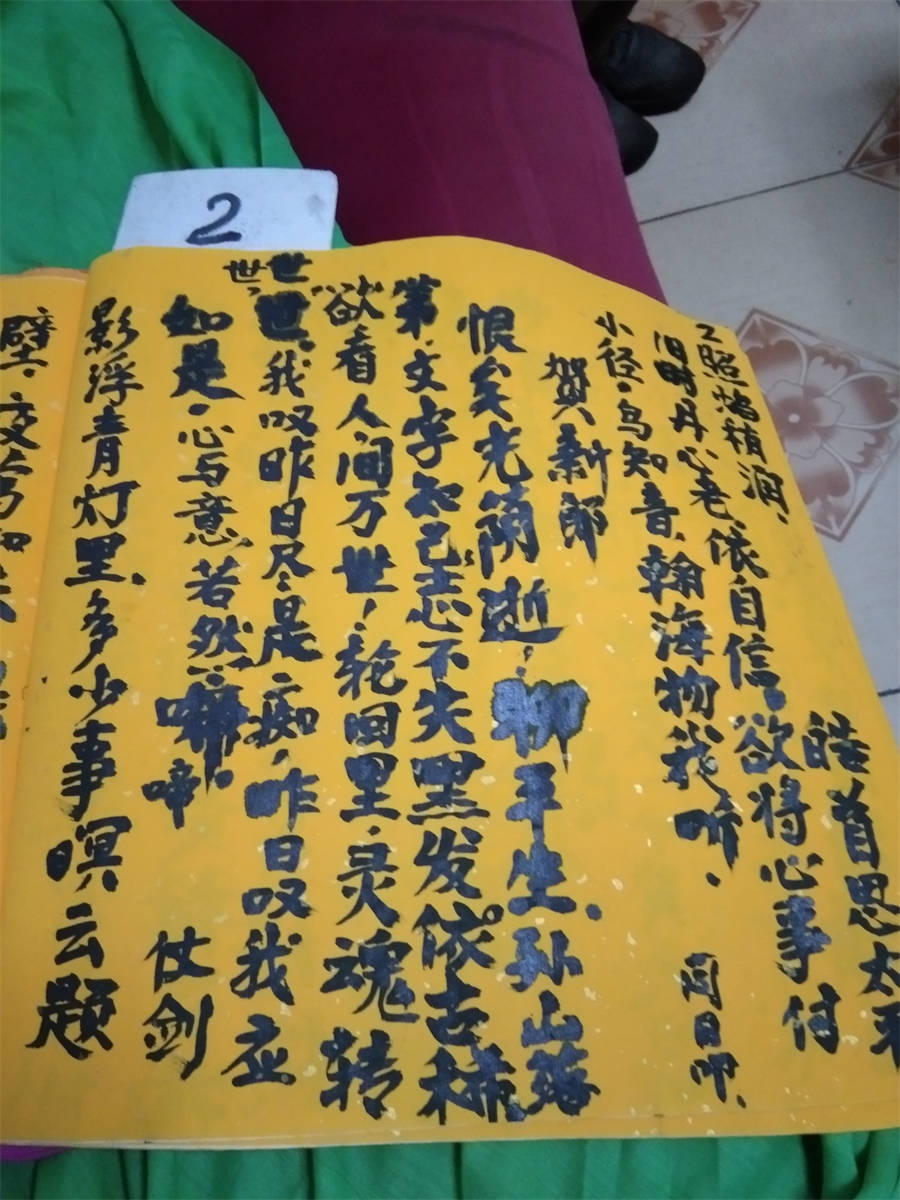 照 稍润 皓首思太
旧时丹心老依自信。欲将心事付
小径。鸟知音、翰海物我听。 同日
賀新郎
恨矣光蔭逝，聊平生、孙山落
第。文字知己志不失黑发依古稀
欲看人间万世！轮回里、灵魂转
世世
世、我叹昨日尽是痴，昨日叹我应
如是。心与意，若然 啼 仗剑
影浮青灯里、多少事暝云题
壁。
2